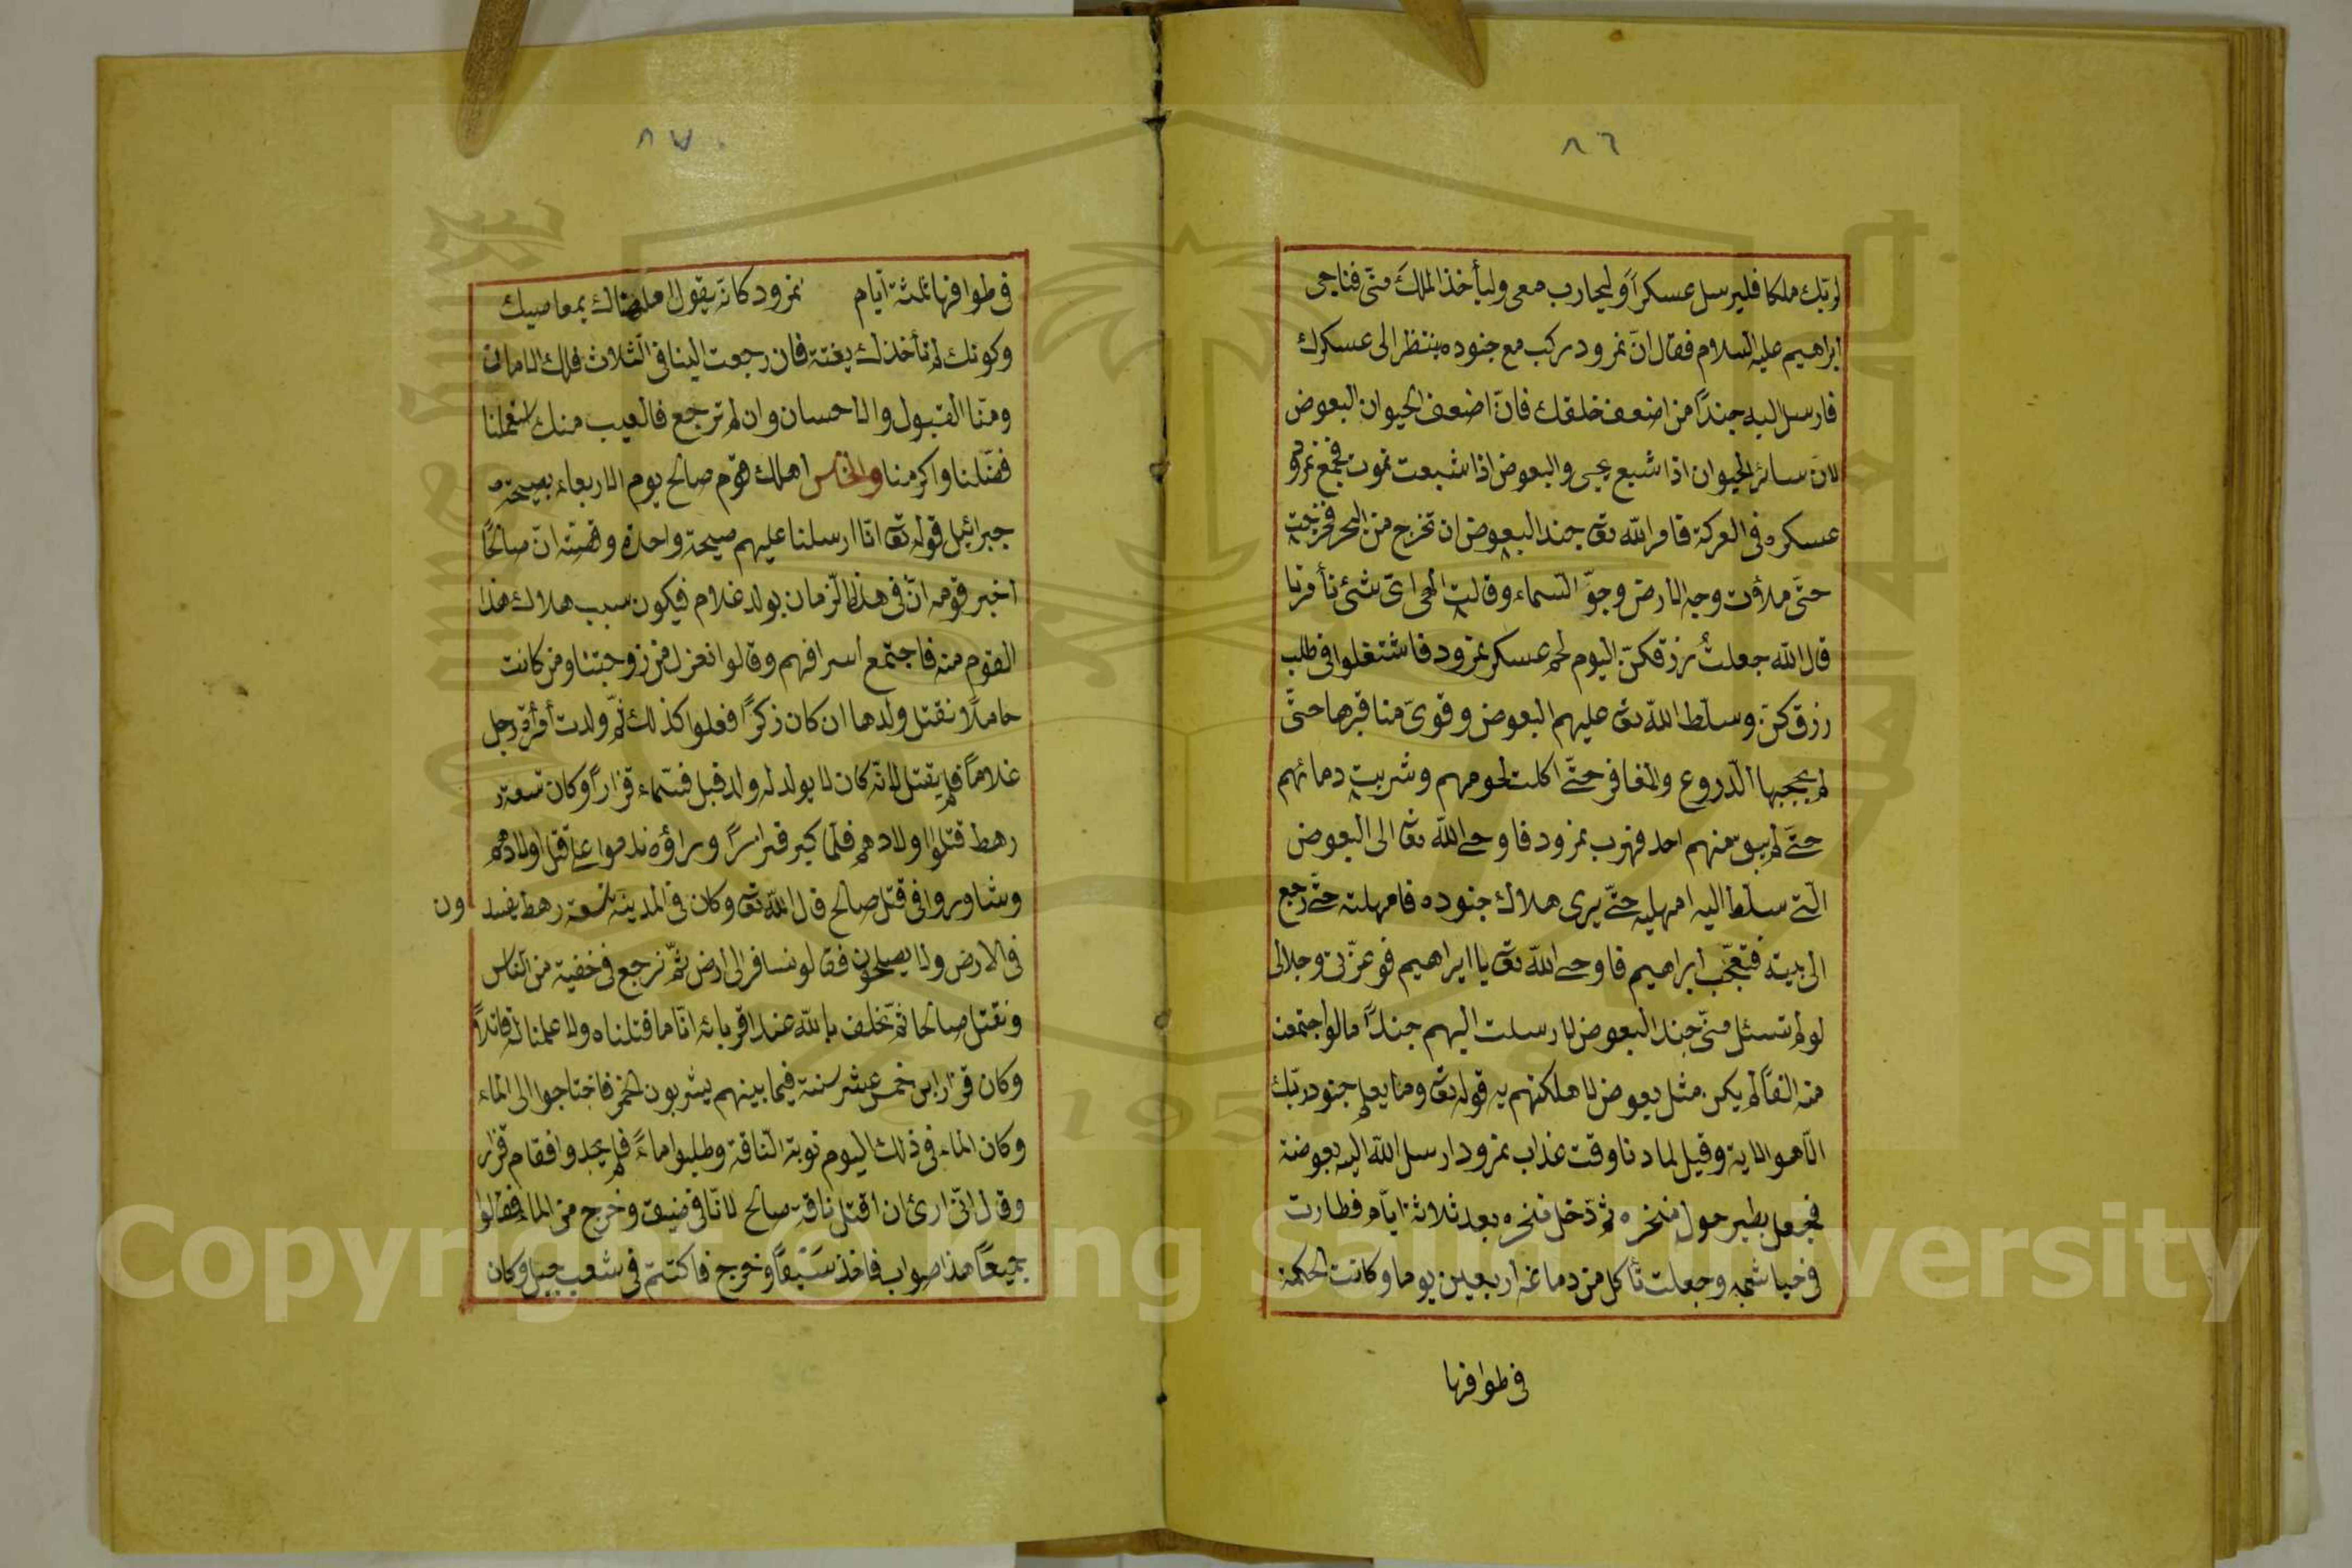 ٨٦
لربك ملكا فليرسل عسكراً وليحارب معى وليأخذ الملك منّى فناجى
ابراهيم عليه السلام فقال انّ نمرود يركب مع جنوده ينتظر الى عسكرك
فارسل اليه جنداً من اضعف خلقك فانّ اضعف الحيوان البعوض
لانّ سائر الحيوان اذا شبع يحيى والبعوض اذا شبعت تموت فجمع نمرود
عسكره فى العركة فامر الله تع جند البعوض ان تخرج من البحر فخرجت
حتّى ملأت وجه الارض وجوّ السماء وقالت الهى اىّ شئ تأمرنا
قال الله جعلتُ رزقكنّ اليوم لحم عسكر نمرود فاشتغلوا فى طلب
رزقكنّ وسلّط الله تع عليهم البعوض وقوىّ مناقرها حتّى
لم يحجبها الدّروع والمغافر حتّى اكلت لحومهم وشربت دمائهم
حتّى لم يبق منهم احد فهرب نمرود فاوحى الله تع الى البعوض
الّتى سلّط اليه امهليه حتّى يرى هلاك جنوده فامهلته حتّى رجع
الى بيته فتعجّب ابراهيم فاوحى الله تع يا ابراهيم فوعزّتى وجلالى
لو لم تسئل منّى جند البعوض لارسلت اليهم جنداً ما لو اجتمعت
منه الفاً لم يكن مثل بعوض لاهلكتهم به قوله تع وما يعلم جنود ربّك
الّا هو الاية وقيل لما دنا وقت عذاب نمرود ارسل الله اليه بعوضة
فجعل يطير حول منخره ثمّ دخل منخره بعد ثلاثة ايّام فطارت
فى خياشمه وجعلت تأكل من دماغه اربعين يوما وكانت الحكمة
فى طوافها
٨٧
فى طوافها ثلثة ايام نمرود كانّه يقول امهلناك بمعاصيك
وكونك لم نأخذك بغتة فان رجعت الينا فى الثّلاث فلك الامان
ومنّا القبول والاحسان وان لم ترجع فالعيب منك
فضّلنا واكرمنا والخامس اهلك قوم صالح يوم الاربعاء بصيحة
جبرائيل قوله تع انّا ارسلنا عليهم صيحة واحدة وقصّته انّ صالحًا
اخبر قومه انّ فى هذا الزّمان يولد غلام فيكون سبب هلاك هذا
القوم منه فاجتمع اسرافهم وقالوا نعزل من زوجتنا ومن كانت
حاملًا نقتل ولدها ان كان ذكرًا ففعلوا كذلك ثمّ ولدت أمرأة رجل
غلاماً فلم يقتل لانّه كان لا يولد له ولد قبل فسّماه قزاراً وكان تسعة
رهط قتلوا اولادهم فلمّا كبر قزاراً وراؤه ندموا على قتل اولادهم
وشاوروا فى قتل صالح قال الله تع وكان فى المدينة تسعة رهط يفسدون
فى الارض ولا يصلحون فقالو نسافر الى ارض ثمّ نرجع فى خفية من النّاس
ونقتل صالحا ثمّ نحلف بالله عند اقربائه انّا ما قتلناه ولا علمنا له قاتلاً
وكان قزار ابن خمس عشر سنة فيما بينهم يشربون الخمر فاحتاجوا الى الماء
وكان الماء فى ذلك اليوم نوبة النّاقة وطلبوا ماءً فلم يجدوا فقام قزار
وقال انّى ارئ ان اقتل ناقة صالح لانّا فى ضيق وخرج من الماء فقالوا
جميعاً هذا صواب فاخذ سَيْفاً وخرج فاكتتم فى شعب جبل وكان
Copyright © King Saud University
1957